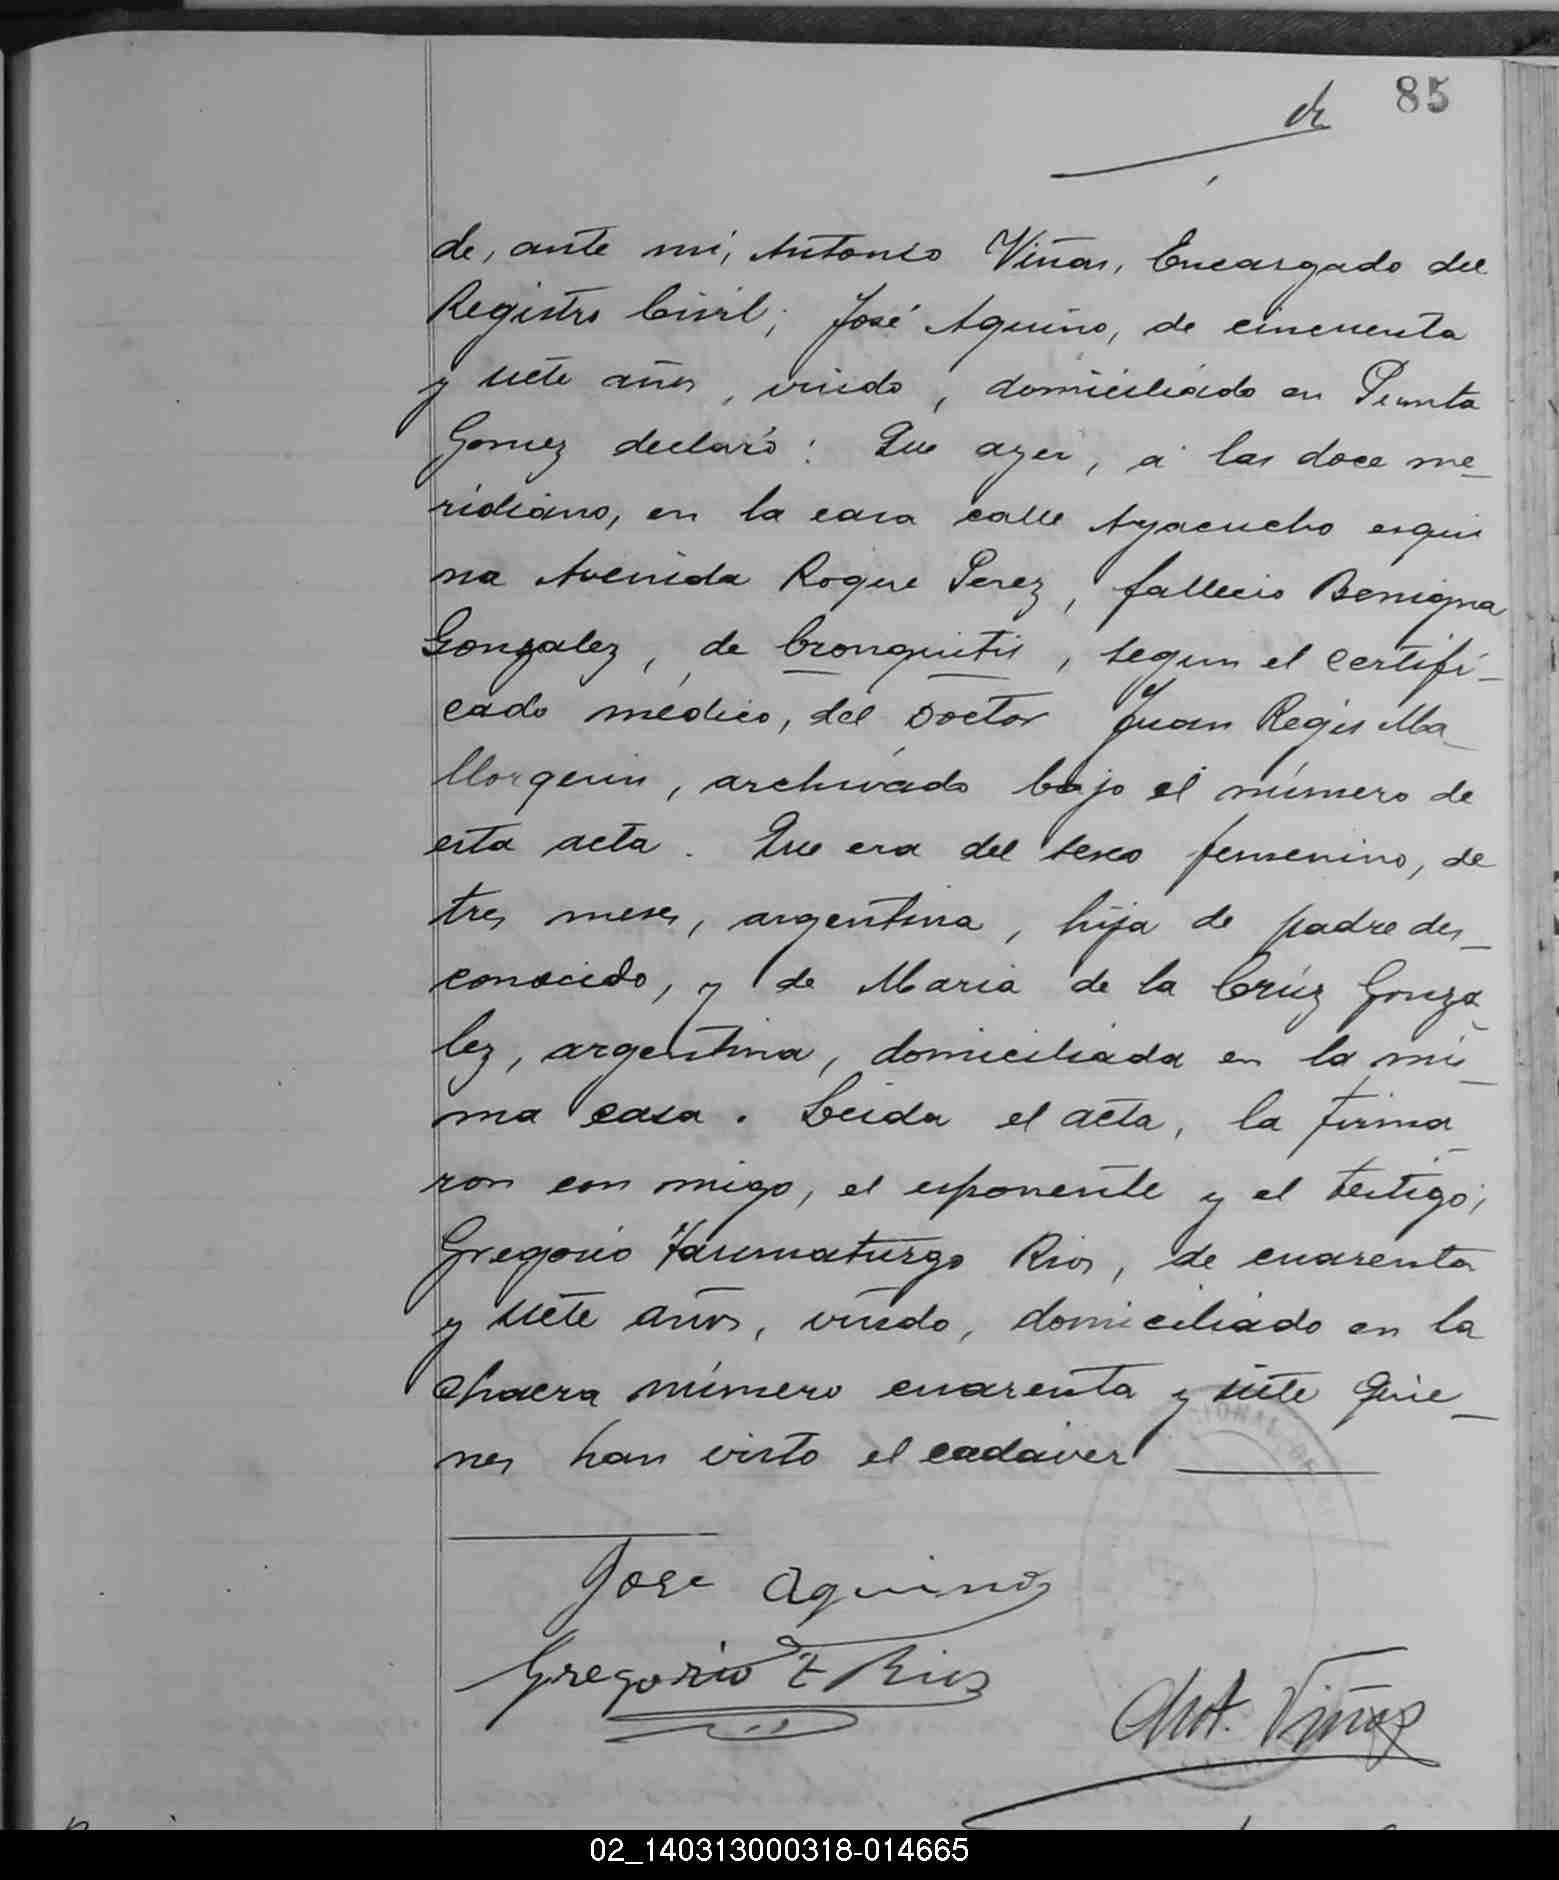 85
de, ante mi, Antonio Viñas, Encargado del
Registro Civil; José Aquino, de cincuenta
y siete años, viudo, domiciliado en Punta
Gomez declaró: Que ayer, á las doce me-
ridiano, en la casa calle Ayacucho esqui
na Avenida Roque Perez, fallecio Benigna
Gonzalez, de bronquitis, segun el certifi-
cado médico, del Doctor Juan Regis Ma-
llorquin, archivado bajo el número de
esta acta. Que era del sexo femenino, de
tres meses, argentina, hija de padre des-
conocido, y de Maria de la Crúz Gonza-
lez, argentina, domiciliada en la mis-
ma casa. Leida el acta, la firma-
ron con migo, el esponente y el testigo;
Gregorio Taumaturgo Rios, de cuarenta
y siete años, viudo, domiciliado en la
chacra número cuarenta y siete quie-
nes han visto el cadaver
Jose Aquino
Gregorio T Rios
Ant. Viñas
02_140313000318-014665